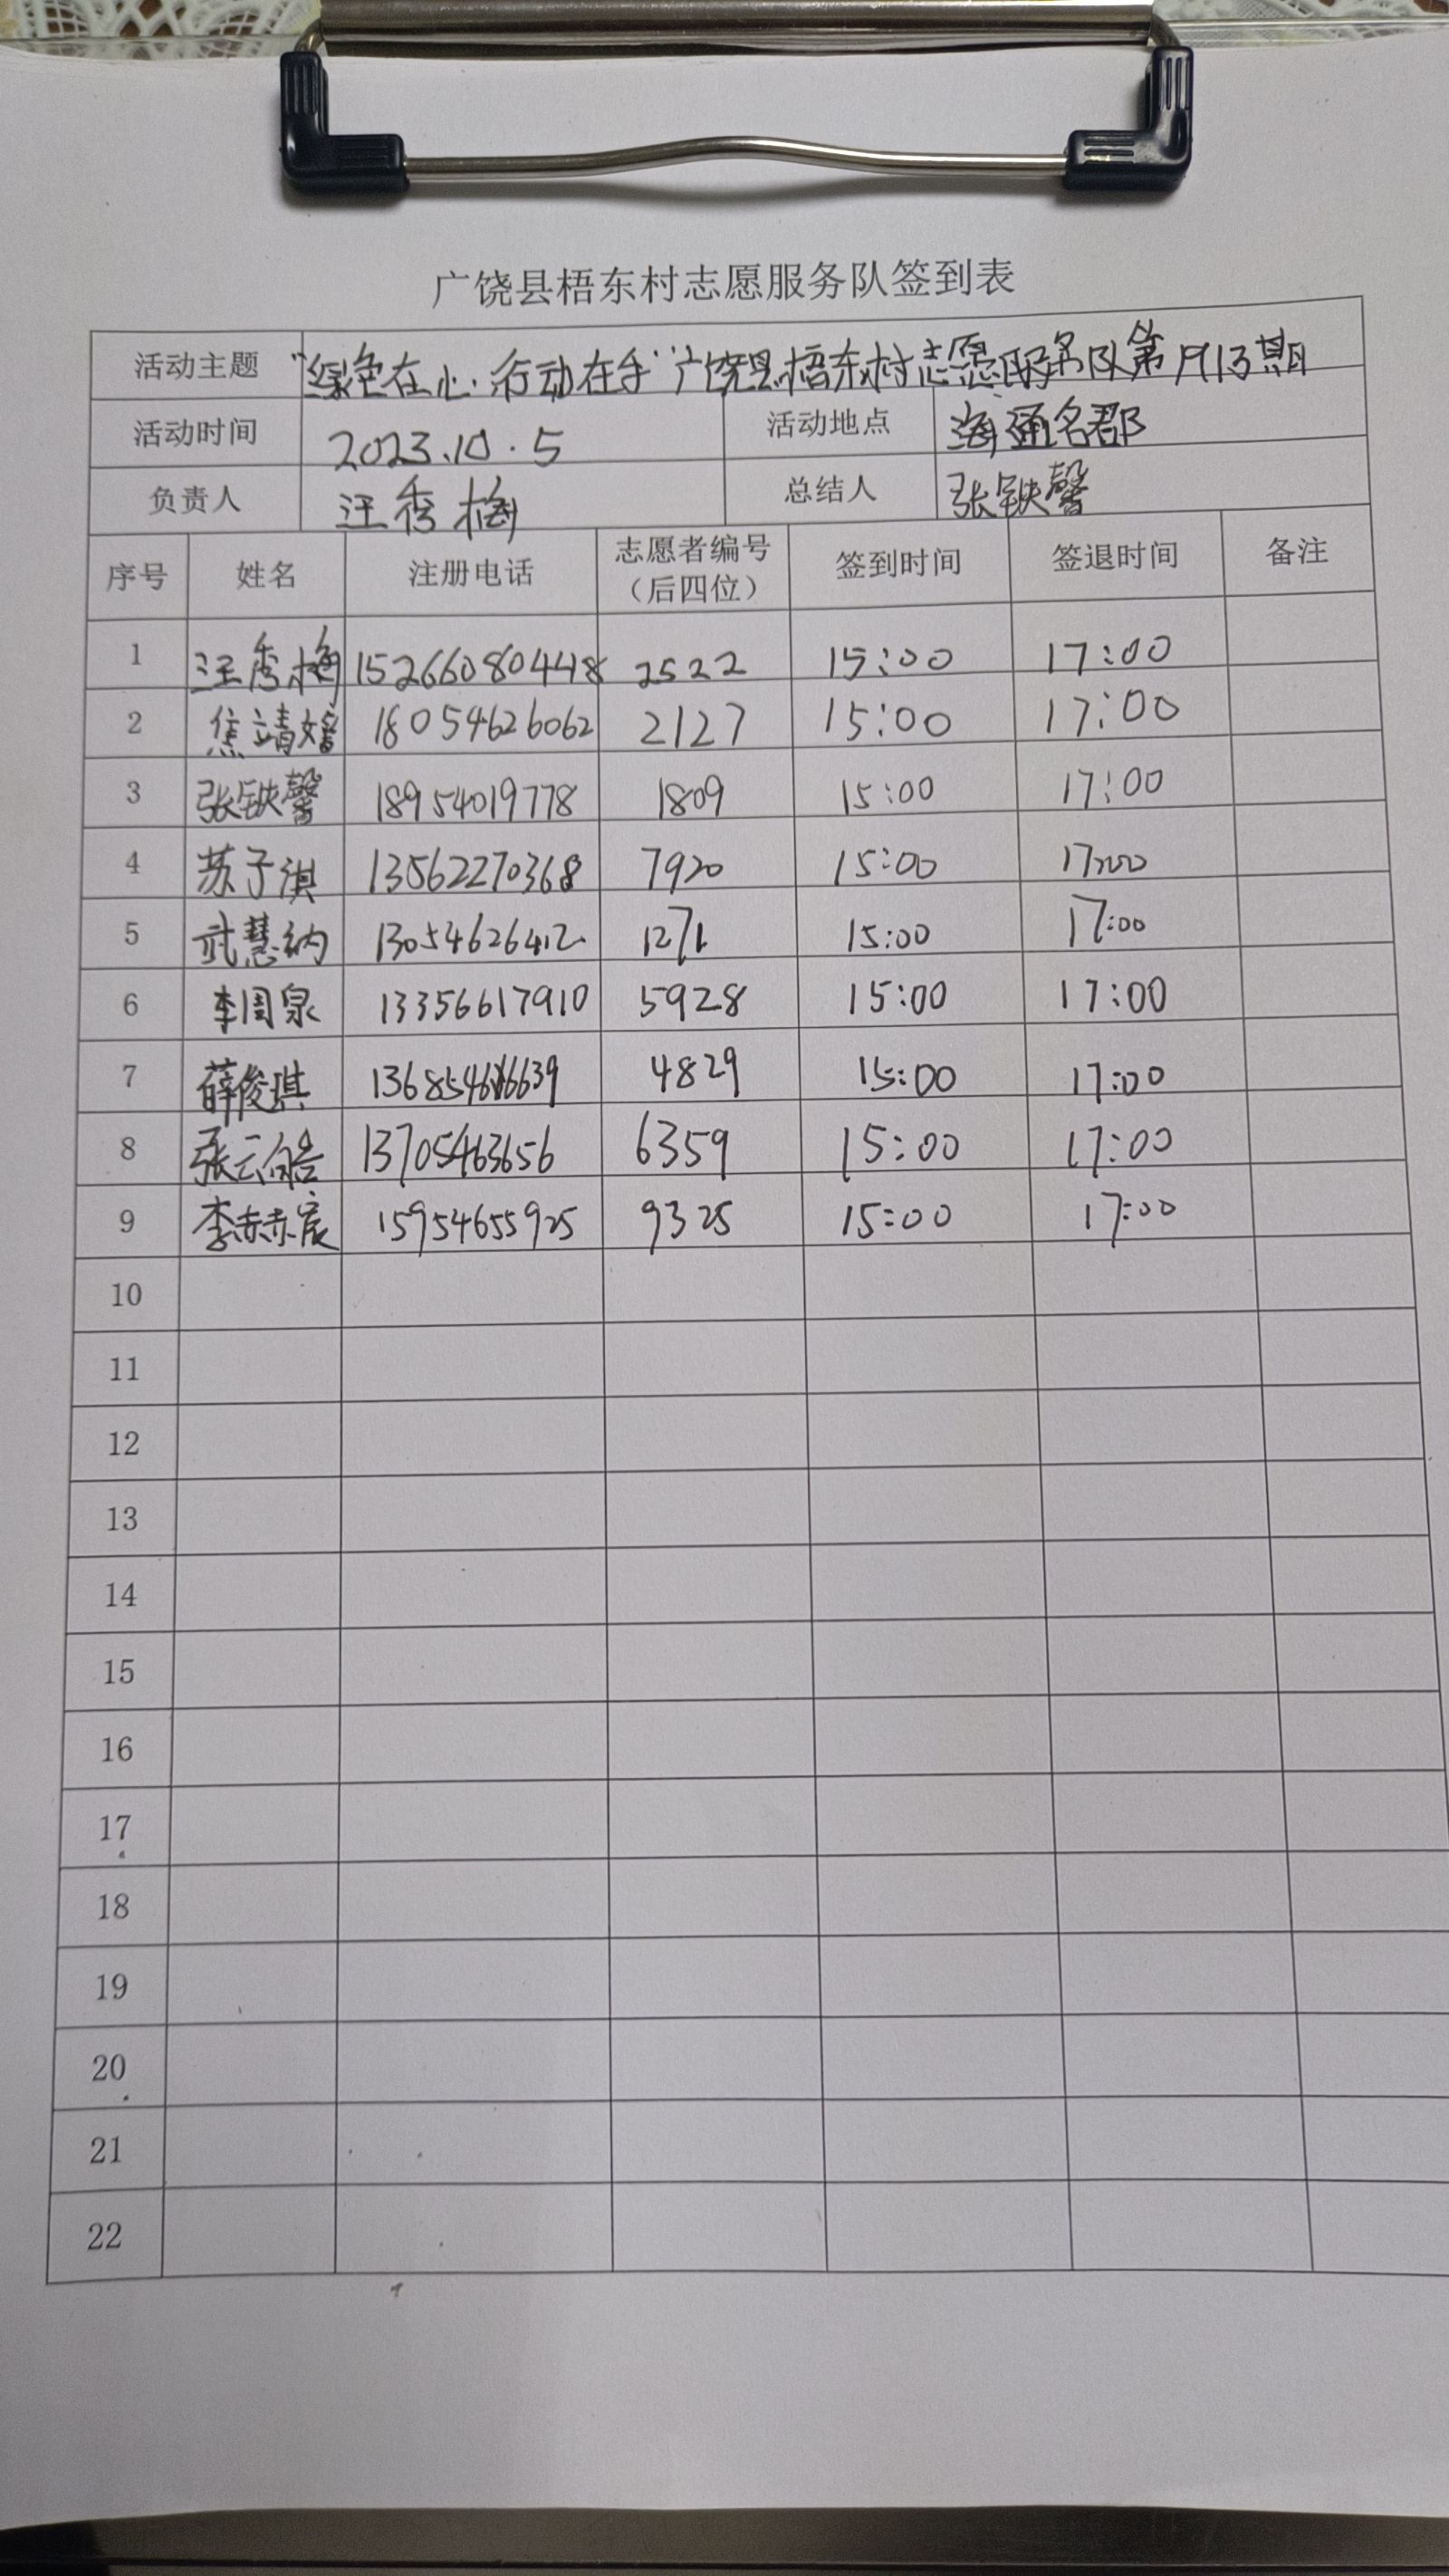 广饶县梧东村志愿服务队签到表
活动主题 "绿色在心·行动在手"广饶县梧东村志愿服务队第1913期
活动时间 2023.10.5 活动地点 海通名郡
负责人 汪秀梅 总结人 张铁馨
序号 姓名 注册电话 志愿者编号（后四位） 签到时间 签退时间 备注
1 汪秀梅 15266080448 2522 15:00 17:00
2 焦靖嫆 18054626062 2127 15:00 17:00
3 张铁馨 18954019778 1809 15:00 17:00
4 苏子淇 13562270368 7920 15:00 17:00
5 武慧纳 13054626412 1271 15:00 17:00
6 李周泉 13356617910 5928 15:00 17:00
7 薛俊琪 4829 15:00 17:00
8 张云皓 13705463656 6359 15:00 17:00
9 李赫宸 15954655925 9325 15:00 17:00
10
11
12
13
14
15
16
17
18
19
20
21
22